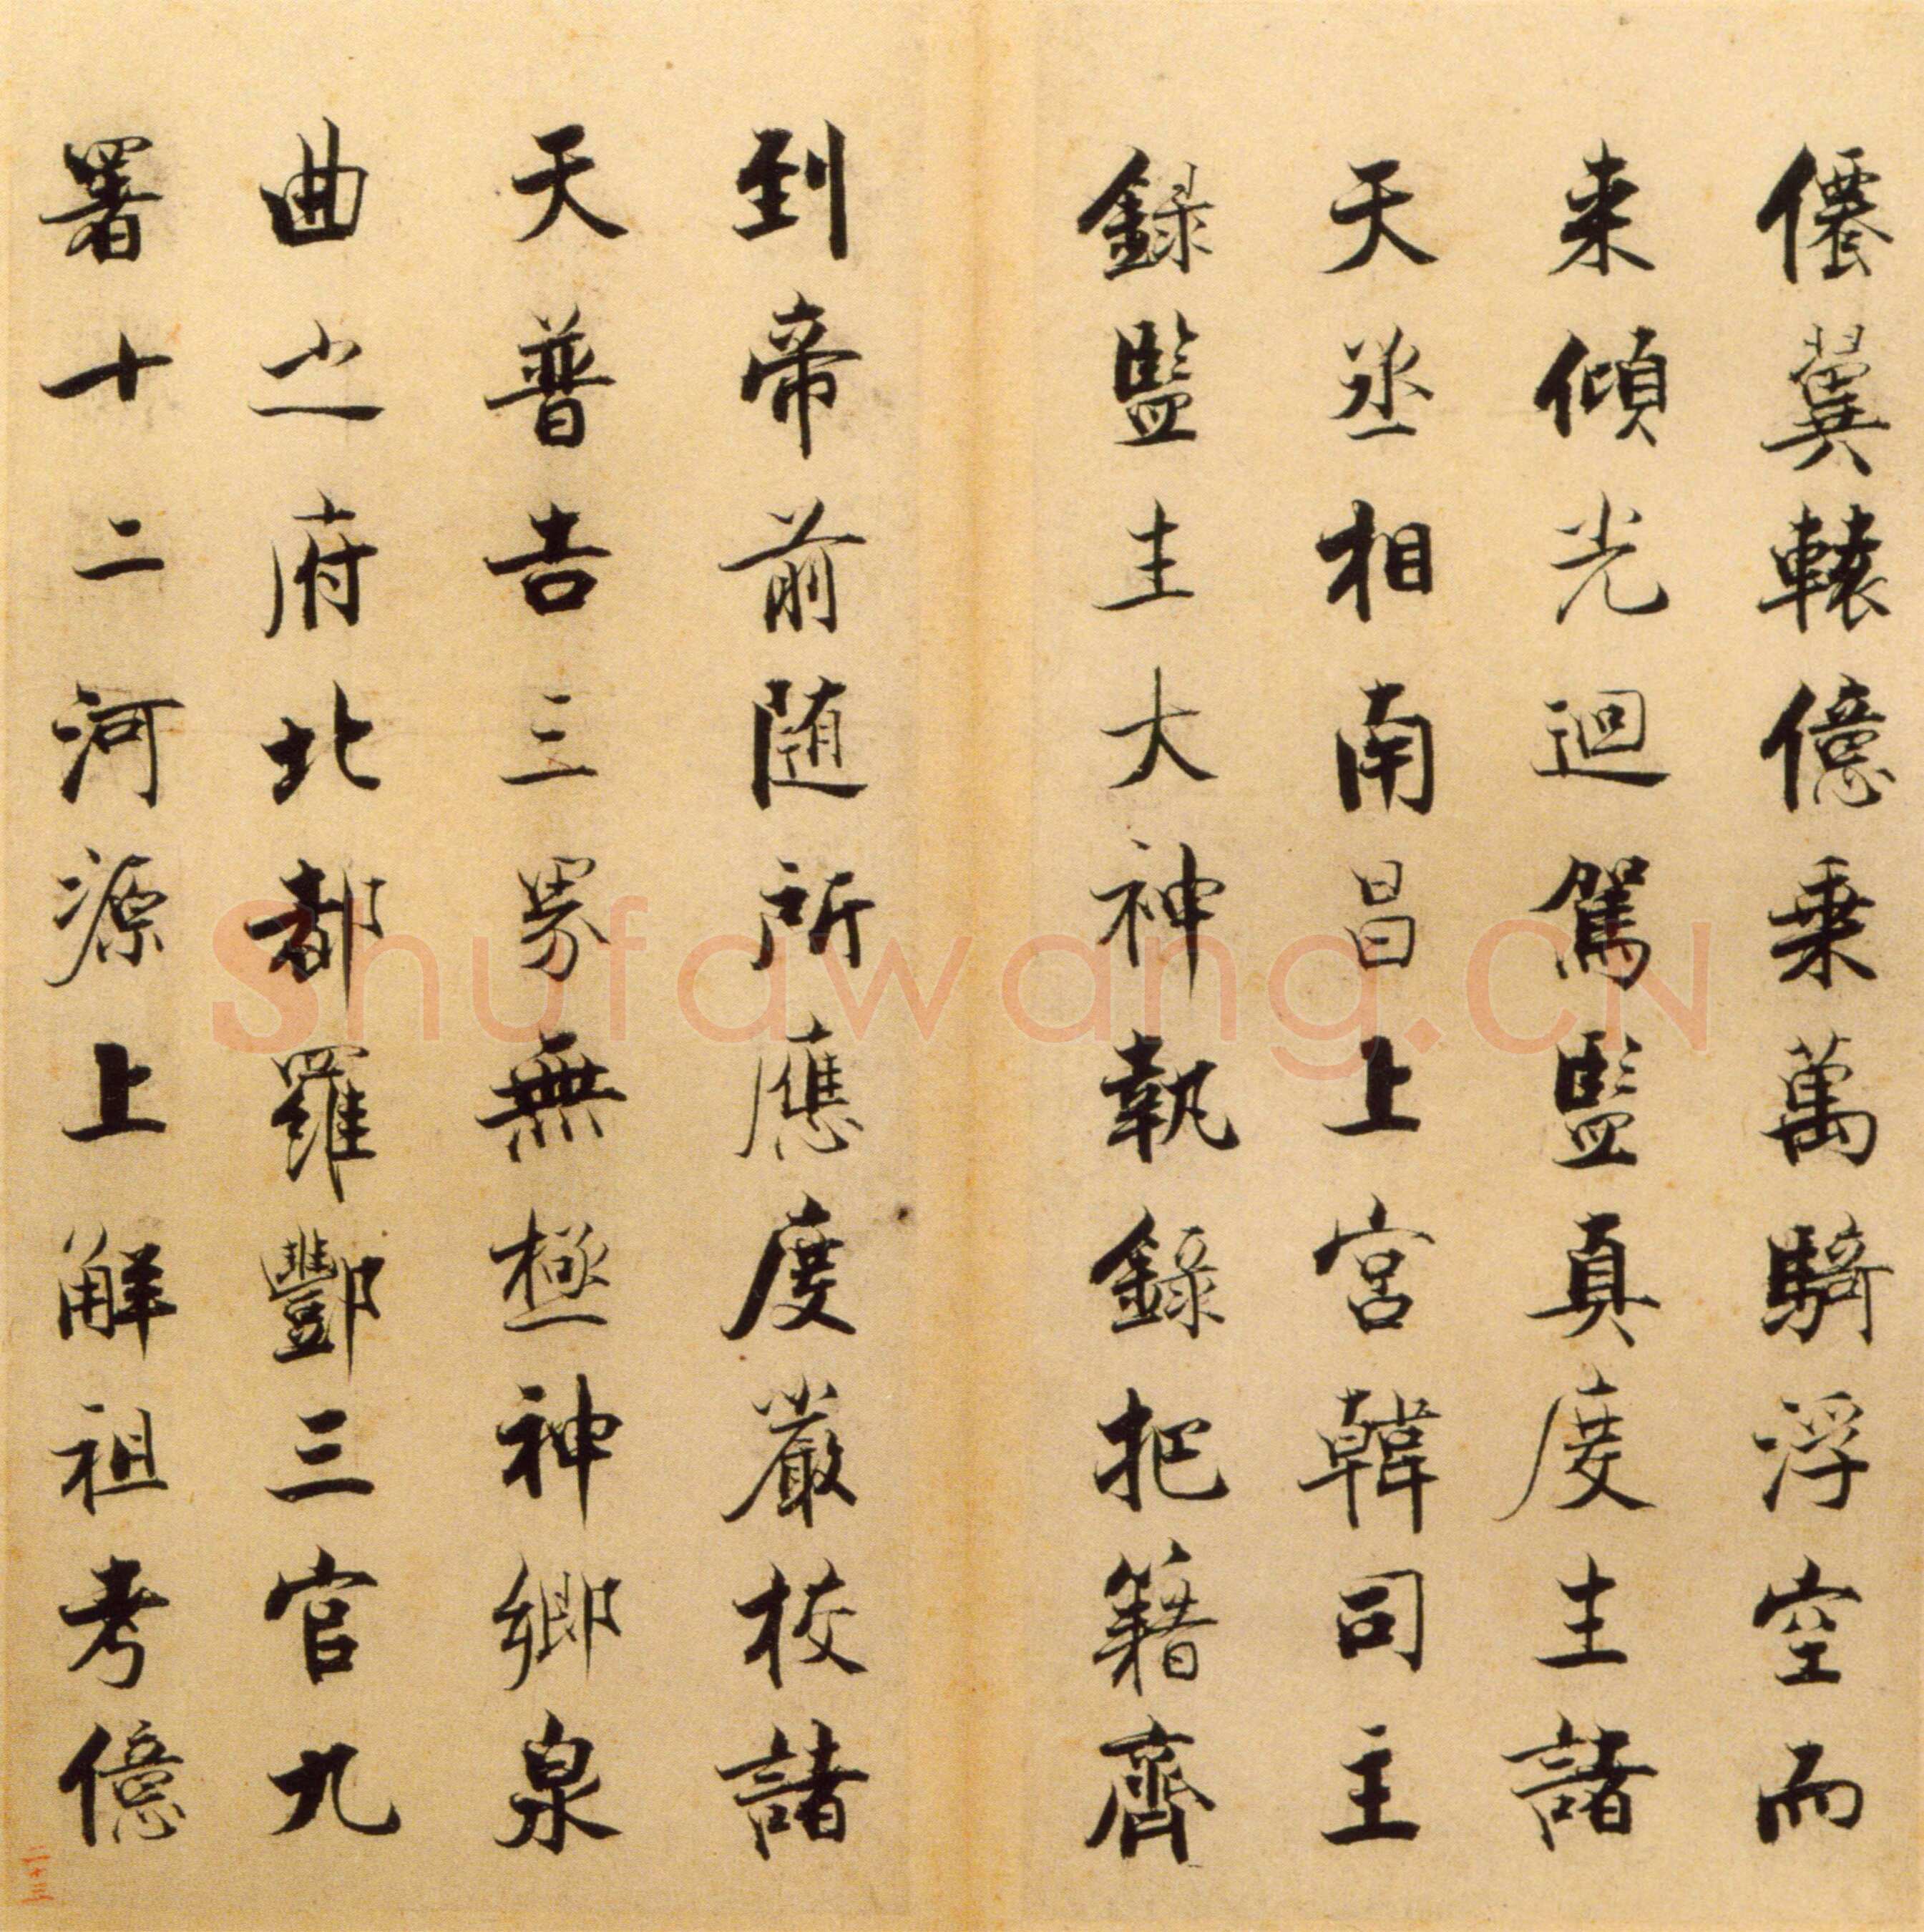 僊翼轅億乘萬騎浮空而
来傾光迴駕監真度生諸
天丞相南昌上宮韓司主
錄監生大神執錄把籍齊
到帝前随所應度嚴校諸
天普告三界無極神鄉泉
曲之府北都羅酆三官九
署十二河源上解祖考億
二十三
Shufawang.CN